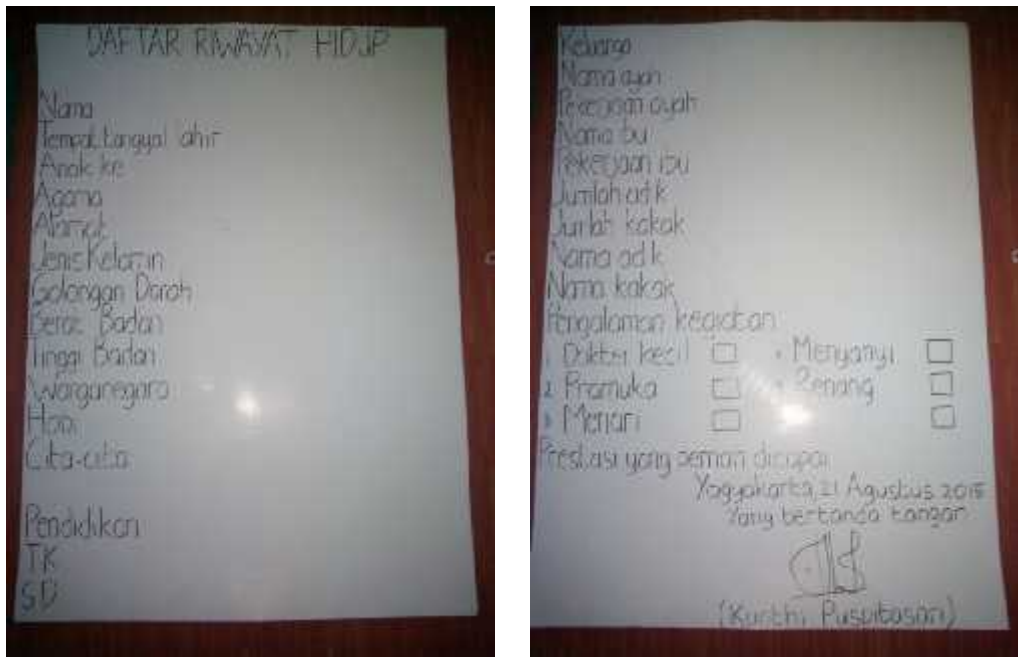 DAFTAR RIWAYAT HIDUP
Nama
Tempat tanggal lahir
Anak ke
Agama
Alamat
Jenis Kelamin
Golongan Darah
Berat Badan
Tinggi Badan
Warganegara
Hobi
Cita-cita
Pendidikan
TK
SD
Keluarga
Nama ayah
Pekerjaan ayah
Nama ibu
Pekerjaan ibu
Jumlah adik
Jumlah kakak
Nama adik
Nama kakak
Pengalaman kegiatan
1. Dokter kecil
Menyanyi
2. Pramuka
Renang
3. Menari
Prestasi yang pernah dicapai
Yogyakarta, 21 Agustus 2015
Yang bertanda tangan
(Kunthi Puspitasari)